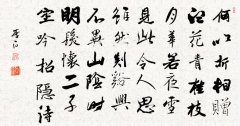 何以折相贈
白花青桂枝
月華若夜雪
見此令人思
雖然剡谿興
不異山陰時
明發懷二子
空吟招隱詩